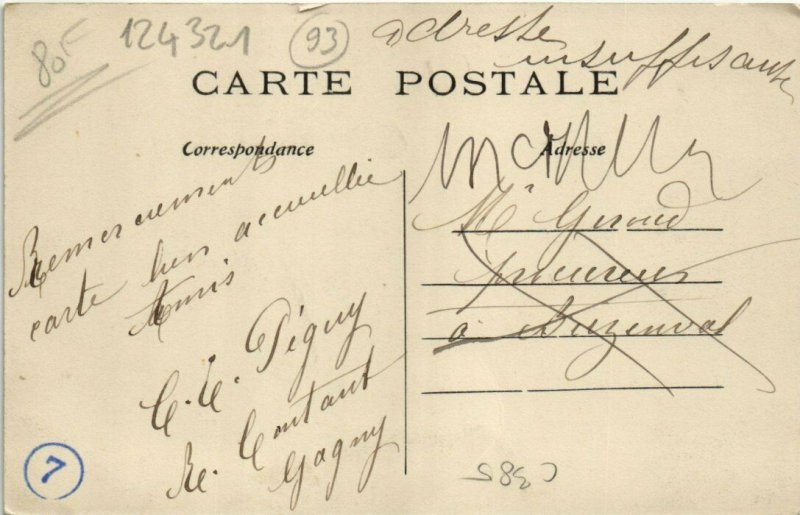 80F
124321
93
adresse
insuffisante
CARTE POSTALE
Correspondance
Adresse
Remerciements
carte bien accueillie
Amis
Péguy
Re. Contant
Gagny
Mr Geroud
à Buzenval
7
C 385